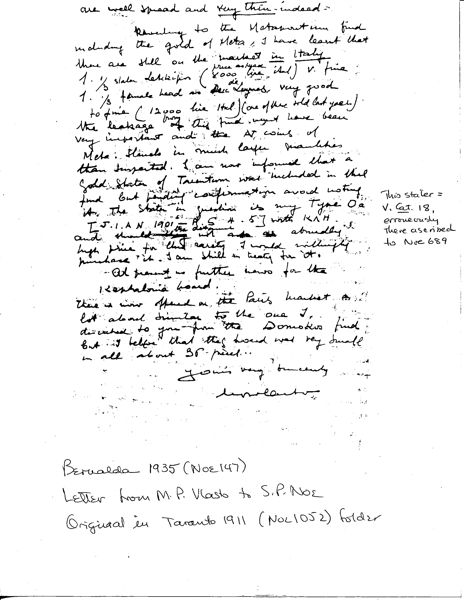 are well spread and very thin indeed =
Reverting to the Metapontum find
including the gold of Meta, I have learnt that
there are still on the market in Italy
price assigned
1. 1/3 stater Leukippos (8000 lire, ital) v. fine
1. 1/3 female head very good
to fine (12000 lire ital) (one of these sold last year)
the leakage from this find must have been
very important and the AR coins of
Meta: Stendo in much larger quantities
than suspected. I am now informed that a
Gold Stater of Tarentum was included in that
find but pending confirmation avoid noting
it, the Stater in question is my Type
[J.I.A.N 1901 5] with KAH.
and should not ask absurdly
high price for this rarity I would willingly
purchase it. I am still in treaty for it.
At present no further news for the
Kephalonia hoard.
there is now offered on the Paris market a
lot about similar to the one I,
described to you from the Domokos find
but I believe that this hoard was very small
in all about 35 pieces...
Yours very sincerely
This stater =
V. Cat. 18,
erroneously
there ascribed
to Noe 689
Bernalda 1935 (Noe 147)
Letter from M.P. Vlasto to S.P. Noe
Original in Taranto 1911 (Noe 1052) folder